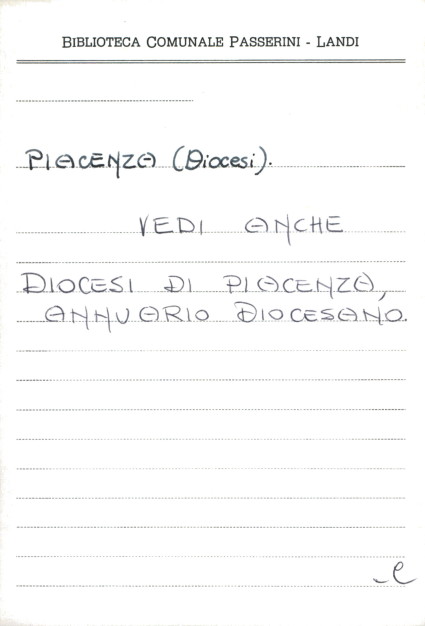 BIBLIOTECA COMUNALE PASSERINI - LANDI
PIACENZA (Diocesi).
VEDI ANCHE
DIOCESI DI PIACENZA,
ANNUARIO DIOCESANO.